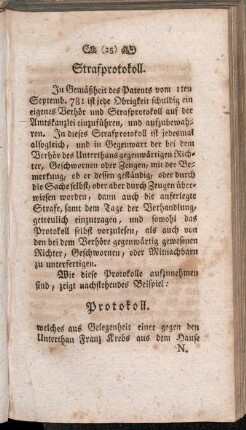 (25)
Strafprotokoll.
In Gemäßheit des Patents vom 1ten
Septemb. 781 ist jede Obrigkeit schuldig ein
eigenes Verhör und Strafprotokoll auf der
Amtskanzlei einzuführen, und aufzubewah-
ren. In dieses Strafprotokoll ist jedesmal
alsogleich, und in Gegenwart der bei dem
Verhör des Unterthans gegenwärtigen Rich-
ter, Geschwornen oder Zeugen, mit der Be-
merkung, ob er dessen geständig, oder durch
die Sache selbst, oder aber durch Zeugen über-
wiesen worden, dann auch die auferlegte
Strafe, samt dem Tage der Verhandlung,
getreulich einzutragen, und sowohl das
Protokoll selbst vorzulesen, als auch von
den bei dem Verhöre gegenwärtig gewesenen
Richter, Geschwornen, oder Mitnachbarn
zu unterfertigen.
Wie diese Protokolle aufzunehmen
sind, zeigt nachstehendes Beispiel:
Protokoll.
welches aus Gelegenheit einer gegen den
Unterthan Franz Krebs aus dem Hause
N.